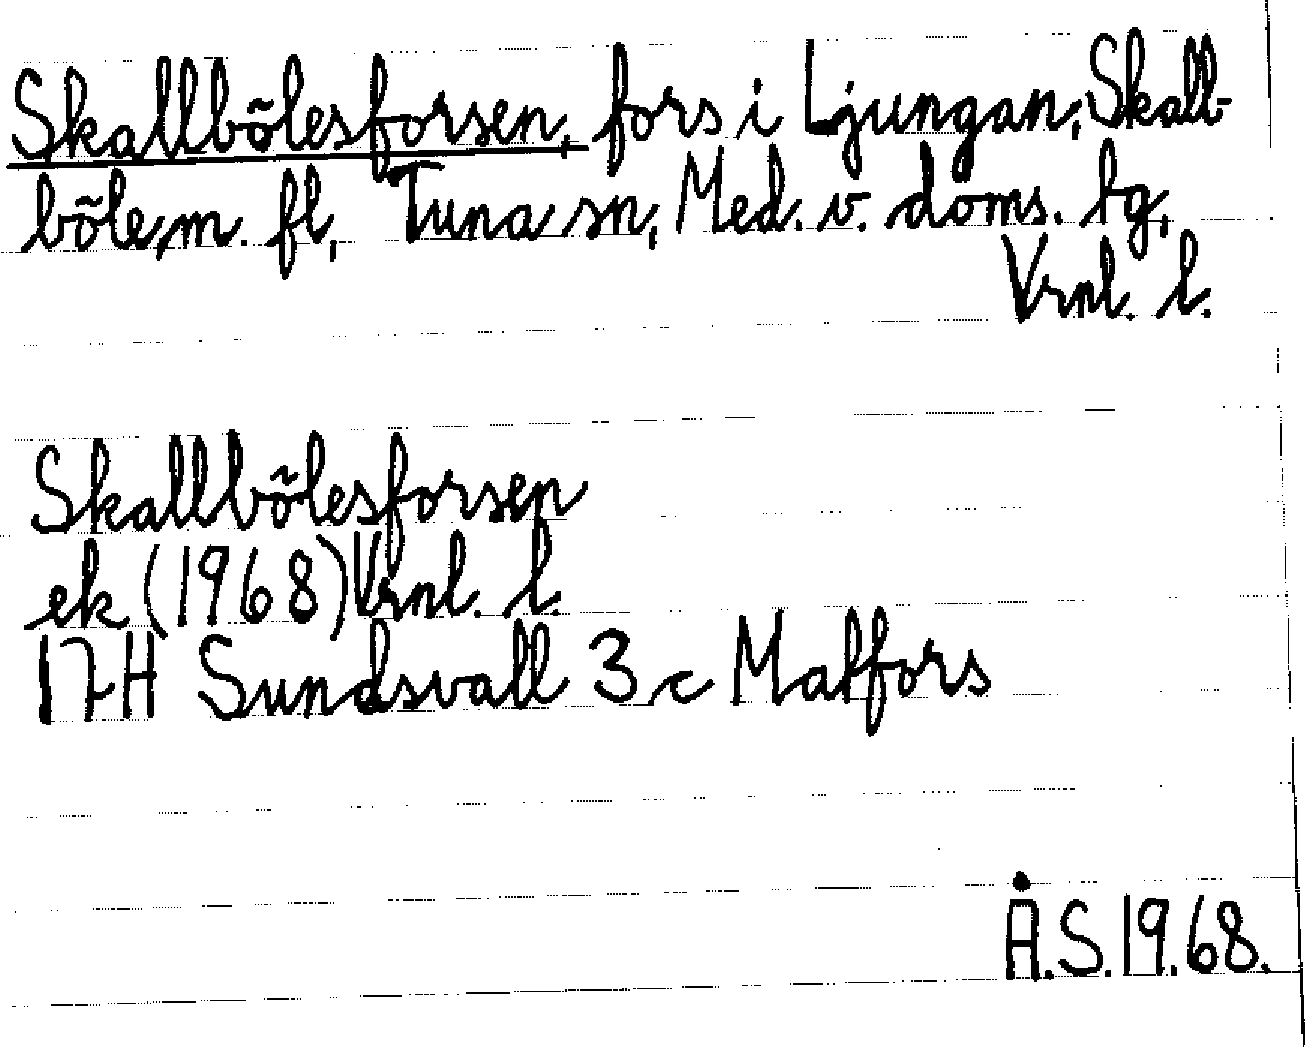 Skallbölesforsen, fors i Ljungan, Skall-
böle, m. fl, Tuna sn, Med. v. doms. tg,
Vrnl. l.
Skallbölesforsen
ek (1968) Vrnl. l.
17H Sundsvall 3 c Matfors
Å.S. 19.68.